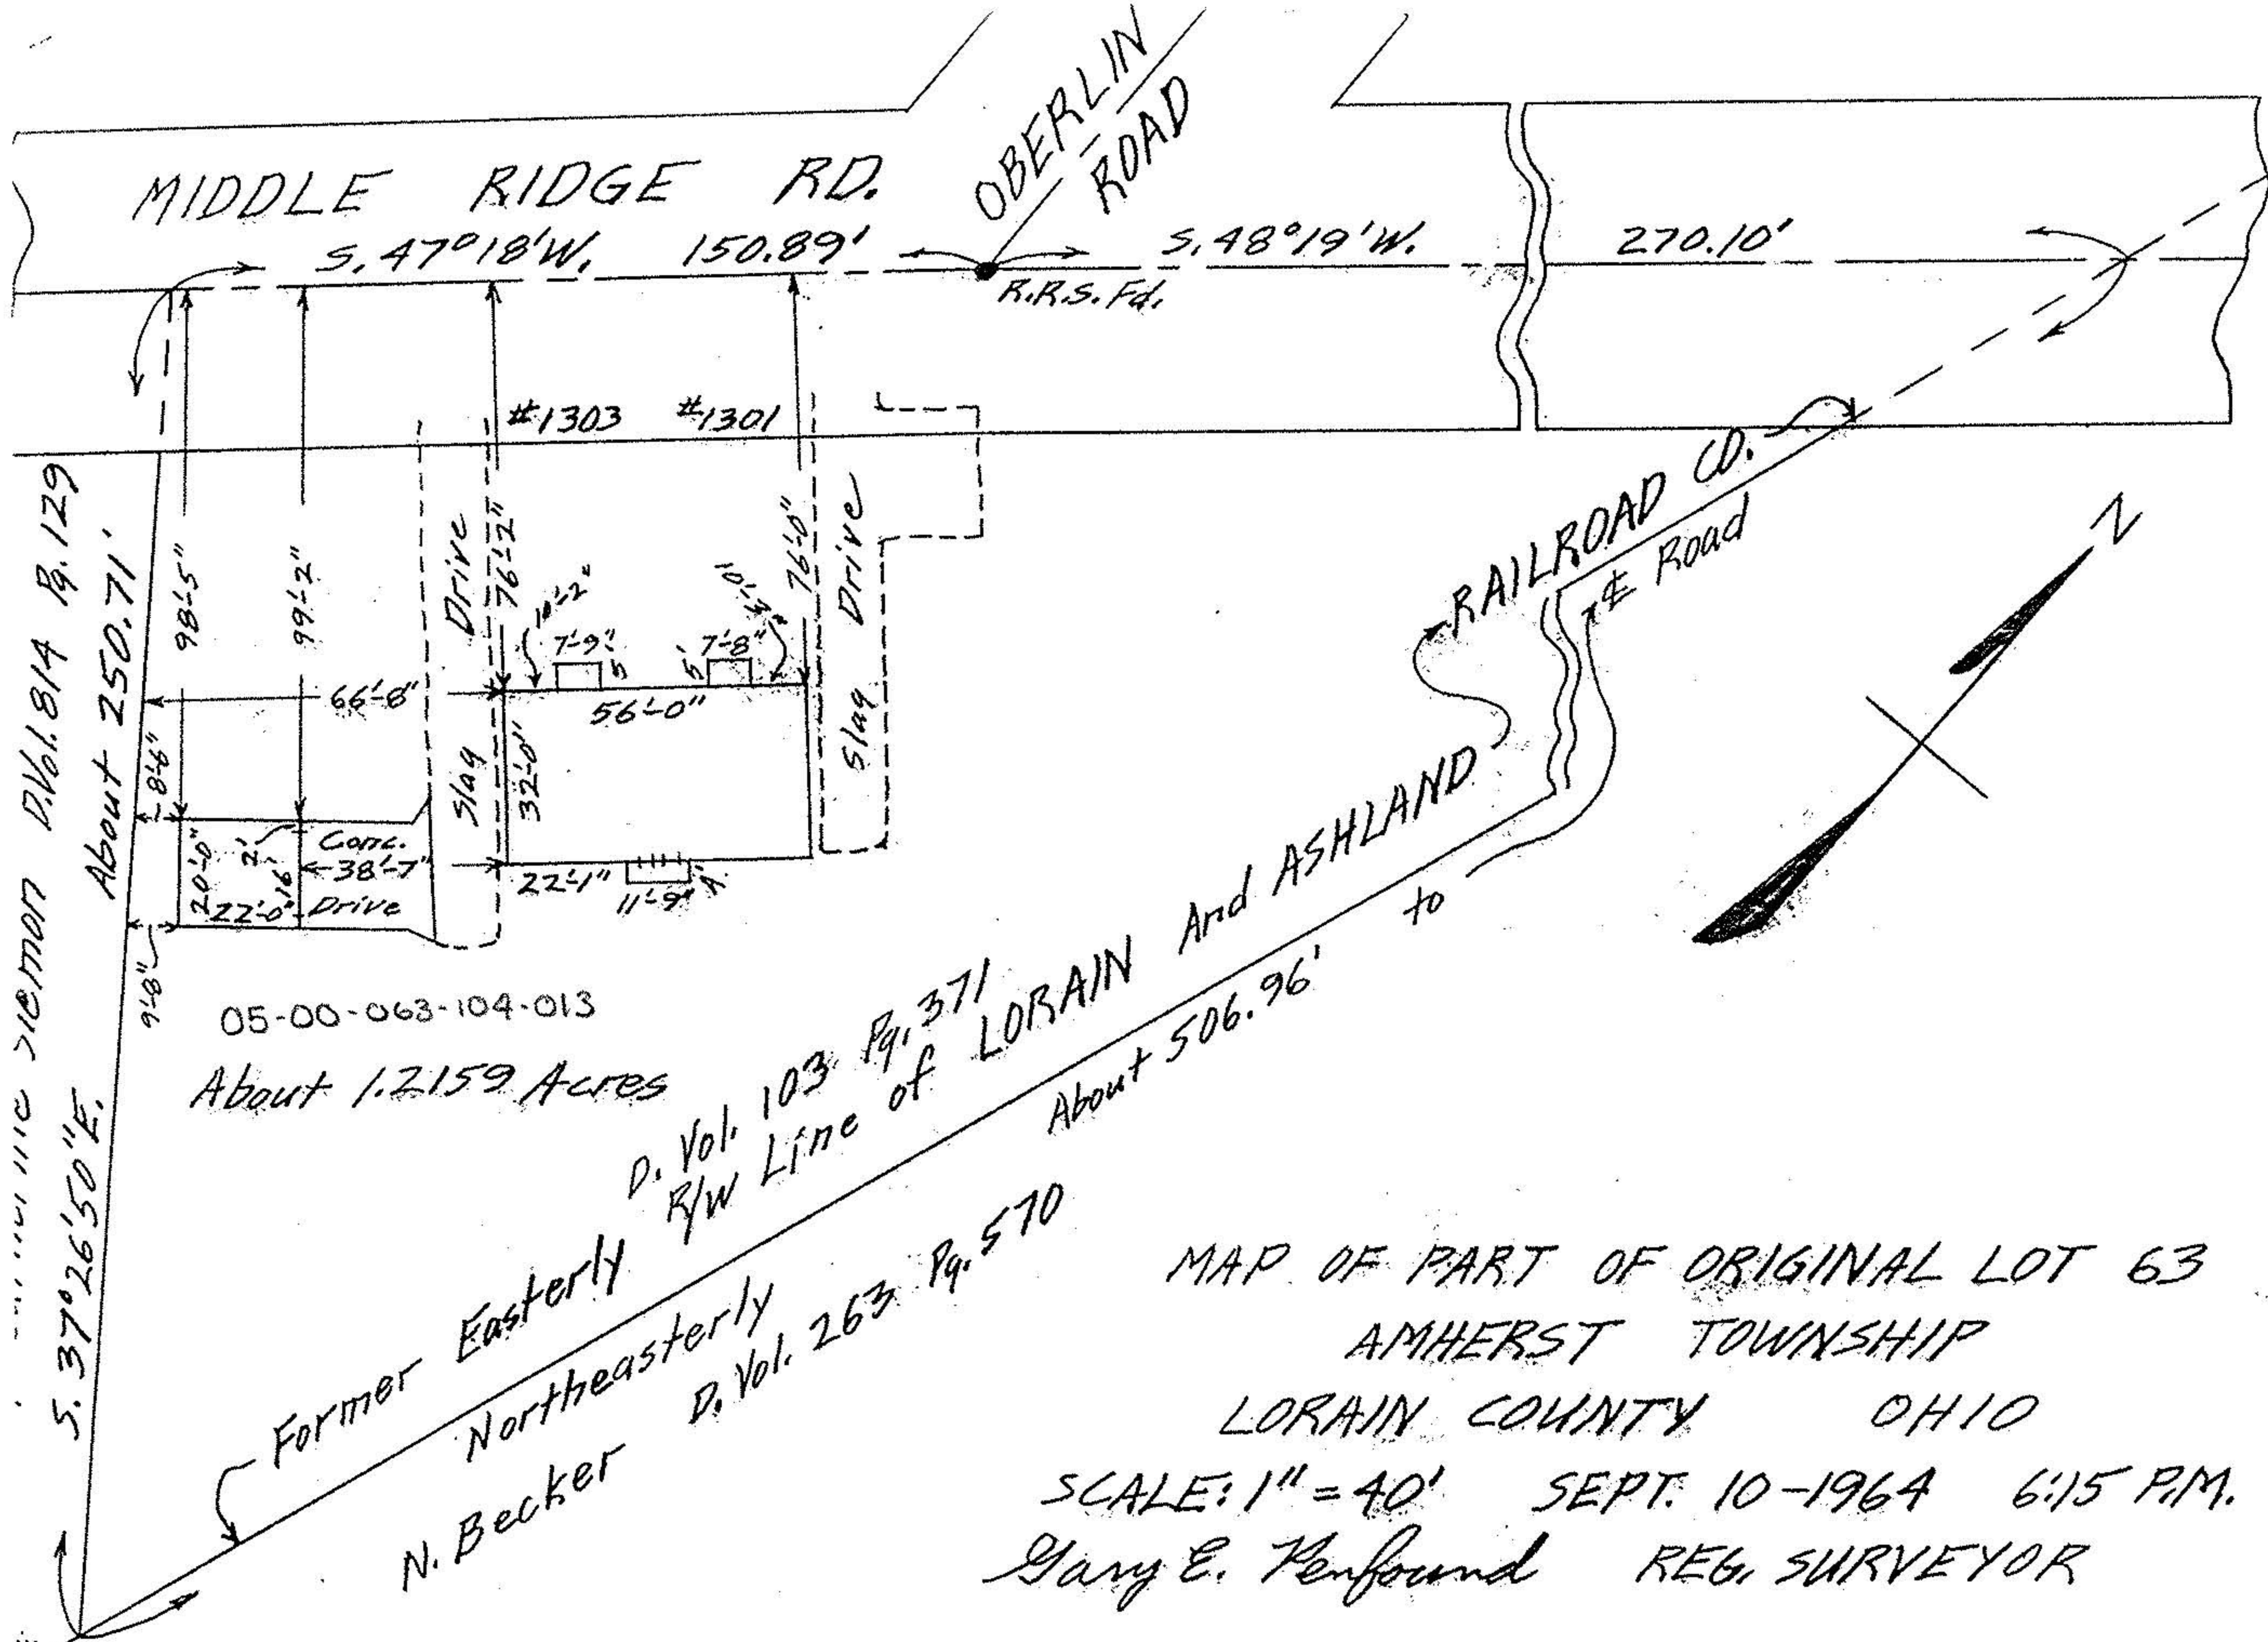 OBERLIN
ROAD
MIDDLE RIDGE RD.
S. 47°18'W. 150.89'
S. 48°19'W. 270.10'
R.R.S. Fd.
#1303 #1301
D.Vol. 814 Pg. 129
About 250.71'
S. 37°26'50"E.
98'-5"
99'-2"
Slag Drive
76'-2"
76'-0"
Slag Drive
7'-9"
5'
5'
7'-8"
66'-8"
56'-0"
32'-0"
8'-6"
20'-0"
2'
16'
Conc.
38'-7"
22'-0"
Drive
22'-1"
11'-9"
4'
9'-8"
05-00-063-104-013
About 1.2159 Acres
D. Vol. 103 Pg. 371
Former Easterly R/W Line of LORAIN And ASHLAND
RAILROAD CO.
Northeasterly About 506.96' to
℄ Road
N. Becker D. Vol. 263 Pg. 570
N
MAP OF PART OF ORIGINAL LOT 63
AMHERST TOWNSHIP
LORAIN COUNTY OHIO
SCALE: 1" = 40' SEPT. 10-1964 6:15 P.M.
Gary E. Penfound REG. SURVEYOR